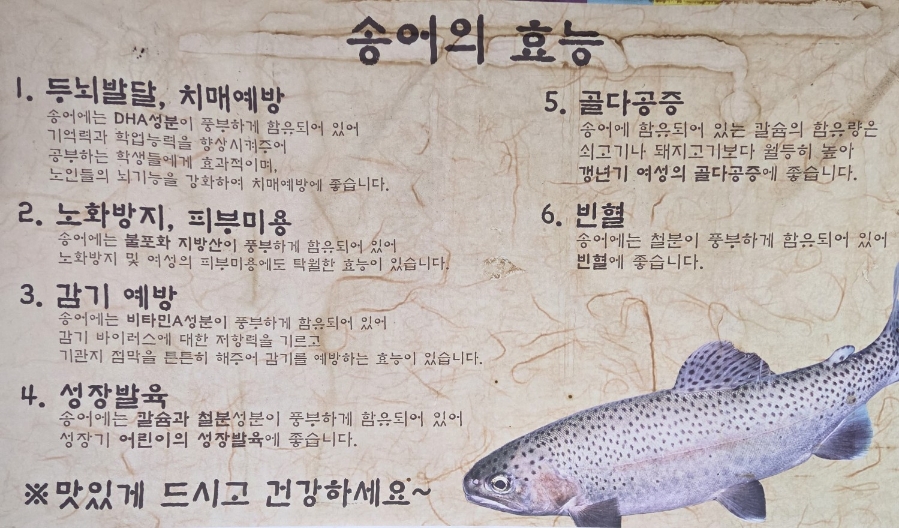 송어의 효능
1. 두뇌발달, 치매예방
송어에는 DHA성분이 풍부하게 함유되어 있어
기억력과 학업능력을 향상시켜주어
공부하는 학생들에게 효과적이며,
노인들의 뇌기능을 강화하여 치매예방에 좋습니다.
2. 노화방지, 피부미용
송어에는 불포화 지방산이 풍부하게 함유되어 있어
노화방지 및 여성의 피부미용에도 탁월한 효능이 있습니다.
3. 감기 예방
송어에는 비타민A성분이 풍부하게 함유되어 있어
감기 바이러스에 대한 저항력을 기르고
기관지 점막을 튼튼히 해주어 감기를 예방하는 효능이 있습니다.
4. 성장발육
송어에는 칼슘과 철분성분이 풍부하게 함유되어 있어
성장기 어린이의 성장발육에 좋습니다.
5. 골다공증
송어에 함유되어 있는 칼슘의 함유량은
쇠고기나 돼지고기보다 월등히 높아
갱년기 여성의 골다공증에 좋습니다.
6. 빈혈
송어에는 철분이 풍부하게 함유되어 있어
빈혈에 좋습니다.
※맛있게 드시고 건강하세요~